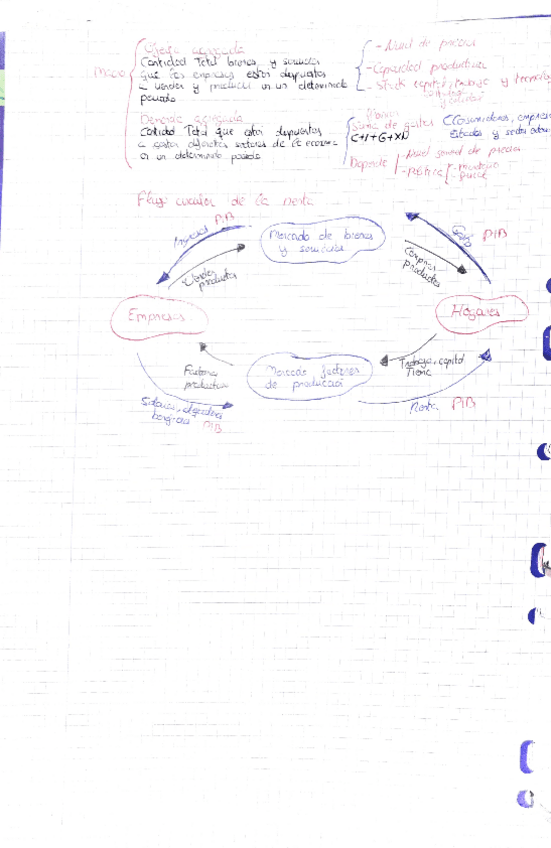 Oferta agregada
Cantidad Total bienes y servicios
que las empresas están dispuestos
a vender y producir en un determinado
periodo
Macro
- Nivel de precios
- Capacidad productiva
- Stock capital, trabajo y tecnología
Demanda agregada
Cantidad Total que están dispuestos
a gastar diferentes sectores de la economía
en un determinado periodo
Suma de gastos
C+I+G+XN
(Consumidores, empresas
Estados y sector
Depende
- Nivel general de precios
- Política
- monetaria
- fiscal
Flujo circular de la renta
Ingresos PIB
Mercado de bienes
y servicios
Gasto PIB
Vender
productos
Comprar
productos
Empresas
Hogares
Factores
productivos
Mercado factores
de producción
Trabajo, capital
Tierra
Salarios, alquileres
beneficios PIB
Renta PIB